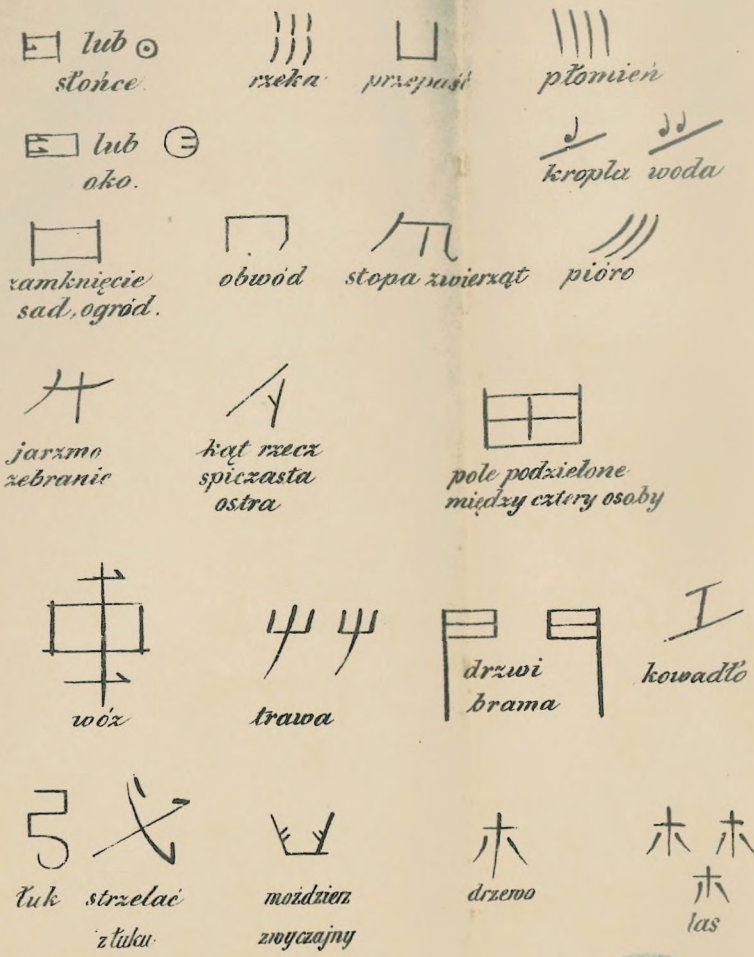 lub
słońce
rzeka
przepaść
płomień
lub
oko.
kropla woda
zamknięcie
sad, ogród.
obwód
stopa zwierząt
pióro
jarzmo
zebranie
kąt rzecz
spiczasta
ostra
pole podzielone
między cztery osoby
wóz
trawa
drzwi
brama
kowadło
łuk
strzelać
z łuku
moździerz
zwyczajny
drzewo
las